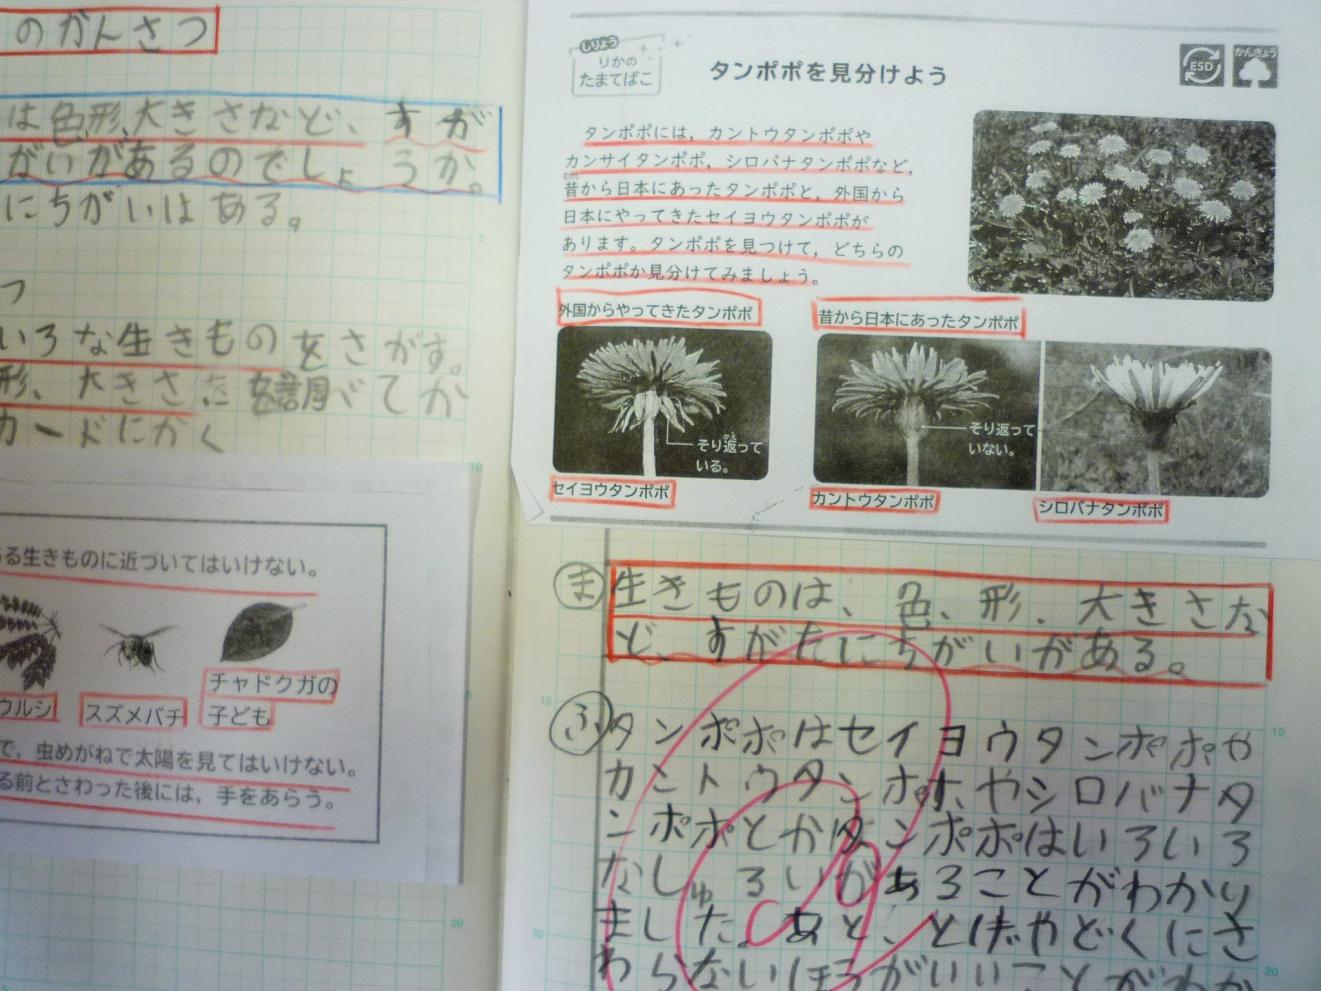 のかんさつ
は色、形、大きさなど、すが
がいがあるのでしょうか。
にちがいはある。
つ
いろな生きものをさがす。
形、大きさ
てか
カードにかく
る生きものに近づいてはいけない。
ウルシ
スズメバチ
チャドクガの
子ども
で、虫めがねで太陽を見てはいけない。
る前とさわった後には，手をあらう。
しりょう
りかの
たまてばこ
タンポポを見分けよう
ESD
かんきょう
タンポポには，カントウタンポポや
カンサイタンポポ，シロバナタンポポなど，
昔から日本にあったタンポポと，外国から
日本にやってきたセイヨウタンポポが
あります。タンポポを見つけて，どちらの
タンポポか見分けてみましょう。
外国からやってきたタンポポ
昔から日本にあったタンポポ
そり返って
いる。
そり返って
いない。
セイヨウタンポポ
カントウタンポポ
シロバナタンポポ
ま 生きものは、色、形、大きさな
ど、すがたにちがいがある。
ふ タンポポはセイヨウタンポポや
カントウタンポポやシロバナタ
ンポポとかタンポポはいろいろ
なしゅるいがあることがわかり
ました。あと、とげやどくにさ
わらないほうがいいことがわか
5
10
15
20
5
15
20
15
20